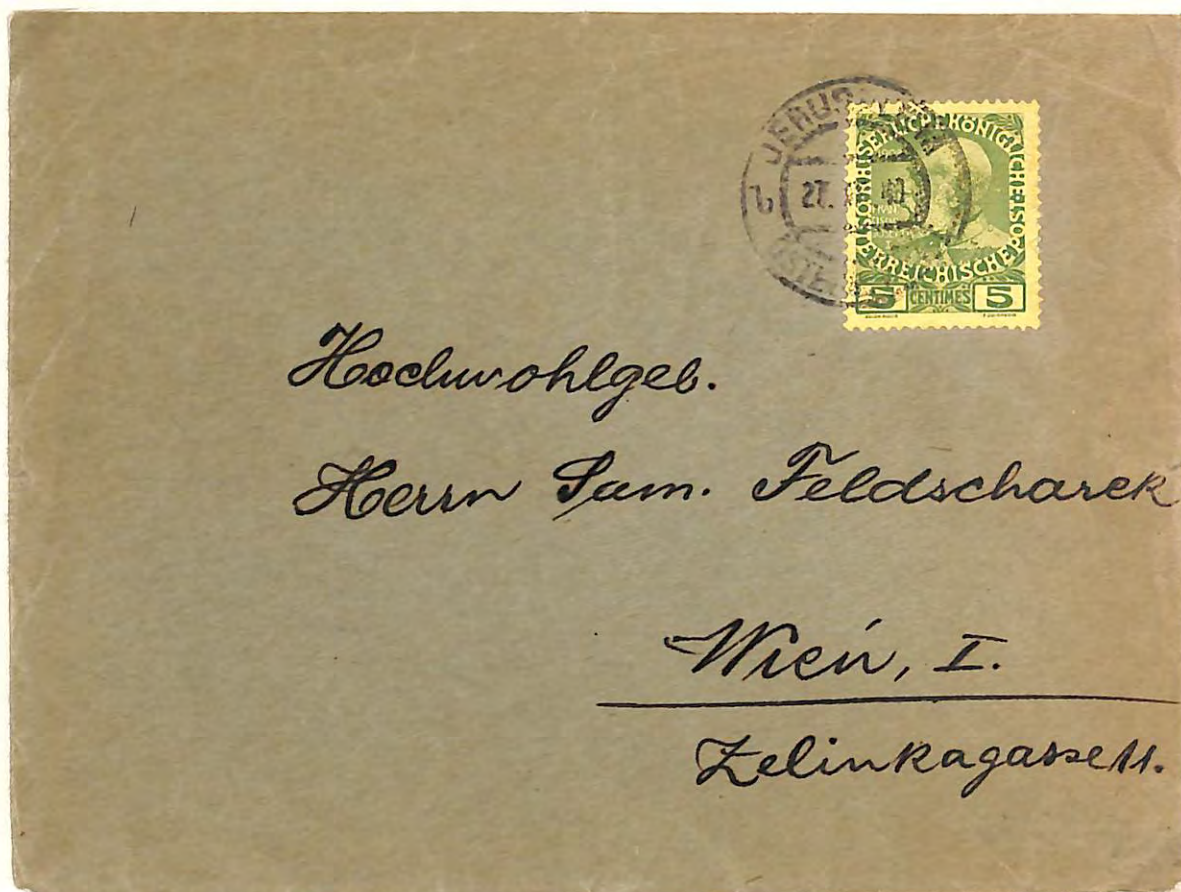 JERUSALEM
b
27.
KAISERLICHE KÖNIGLICHE ÖSTERREICHISCHE POST
5 CENTIMES 5
Hochwohlgeb.
Herrn Sam. Feldscharek
Wien, I.
Zelinkagasse 11.